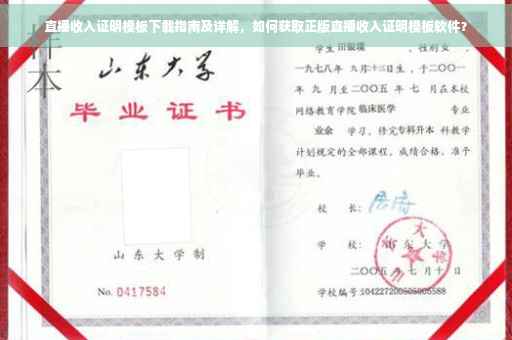 直播收入证明模板下载指南及详解，如何获取正版直播收入证明模板软件？
样本
山东大学
毕业证书
山东大学制
No. 0417584
学生 田银環 ，性别 女 ，
一九七八年 九月十三日生，于二〇〇一
年 九 月至二〇〇五 年 七 月在本校
网络教育学院 临床医学 专业
业余 学习，修完 专科升本 科教学
计划规定的全部课程，成绩合格，准予
毕业。
校 长：
学 校： 山东大学
二〇〇五年七月十日
学校编号:104227200505005588